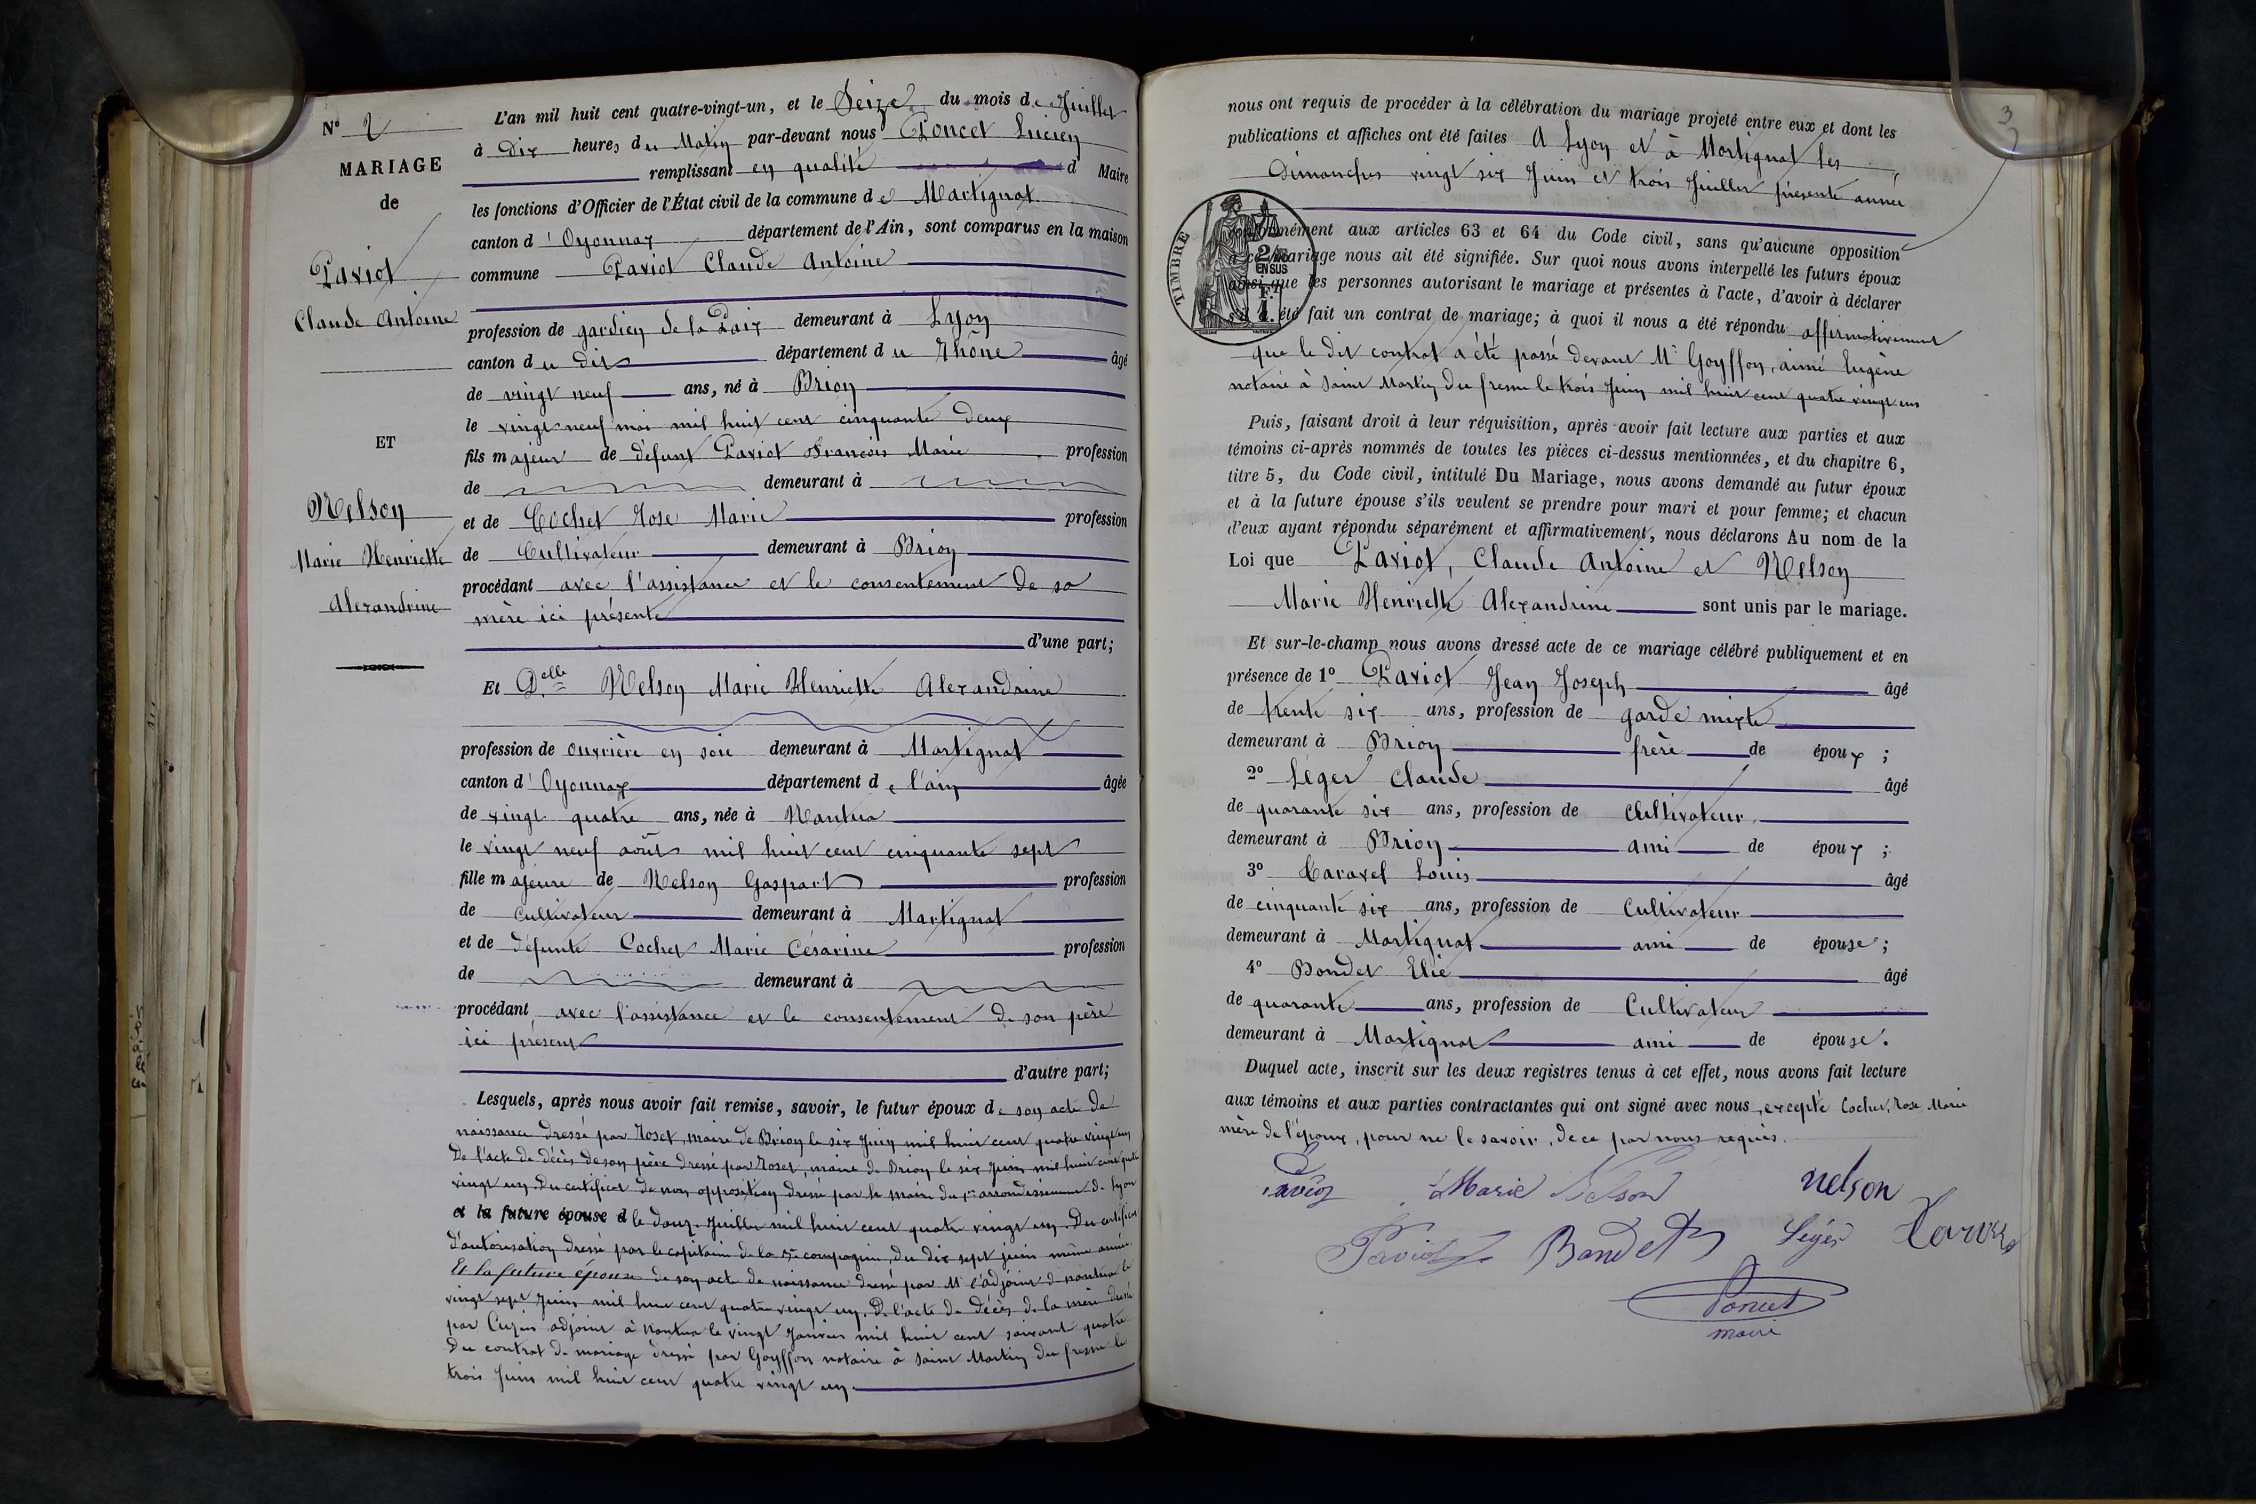 N° 2
MARIAGE
de
Paviot
Claude Antoine
ET
Nelson
Marie Henriette
Alexandrine
L'an mil huit cent quatre-vingt-un, et le Seize du mois de Juillet
à Dix heures du Matin par-devant nous Poncet Lucien
remplissant en qualité d Maire
les fonctions d'Officier de l'État civil de la commune de Martignat
canton d'Oyonnax département de l'Ain, sont comparus en la maison
commune Paviot Claude Antoine
profession de gardien de la Paix demeurant à Lyon
canton du dit département du Rhône âgé
de vingt neuf ans, né à Brion
le vingt neuf mai mil huit cent cinquante deux
fils majeur de défunt Paviot François Marie profession
de demeurant à
et de Cochet Rose Marie profession
de Cultivateur demeurant à Brion
procédant avec l'assistance et le consentement de sa
mère ici présente
d'une part;
Et Delle Nelson Marie Henriette Alexandrine
profession de ouvrière en soie demeurant à Martignat
canton d'Oyonnax département de l'ain âgée
de vingt quatre ans, née à Nantua
le vingt neuf août mil huit cent cinquante sept
fille majeure de Nelson Gaspart profession
de cultivateur demeurant à Martignat
et de défunte Cochet Marie Césarine profession
de demeurant à
procédant avec l'assistance et le consentement de son père
ici présent
d'autre part;
Lesquels, après nous avoir fait remise, savoir, le futur époux de son acte de
naissance dressé par Roset, maire de Brion le six Juin mil huit cent quatre vingt un
De l'acte de décès de son père dressé par Roset, maire de Brion le six Juin mil huit cent quatre
vingt un. Du certificat de non opposition dressé par le maire du 1er arrondissement de Lyon
et la future épouse d le douze Juillet mil huit cent quatre vingt un. Du certificat
d'autorisation dressé par le capitaine de la 5e compagnie, du dix sept juin même année
Et la future épouse de son acte de naissance dressé par Mr l'adjoint de nantua le
vingt sept Juin mil huit cent quatre vingt un. De l'acte de décès de la mère dressé
par adjoint à nantua le vingt Janvier mil huit cent soixante quatre
Du contrat de mariage dressé par Goyffon notaire à Saint Martin du fresne le
trois Juin mil huit cent quatre vingt un.
3
nous ont requis de procéder à la célébration du mariage projeté entre eux et dont les
publications et affiches ont été faites à Lyon et à Martignat les
Dimanches vingt six Juin et trois Juillet présente année
TIMBRE
EN SUS
conformément aux articles 63 et 64 du Code civil, sans qu'aucune opposition
à ce mariage nous ait été signifiée. Sur quoi nous avons interpellé les futurs époux
ainsi que les personnes autorisant le mariage et présentes à l'acte, d'avoir à déclarer
été fait un contrat de mariage; à quoi il nous a été répondu affirmativement
que le dit contrat a été passé devant Me Goyffon, aimé Eugène
notaire à Saint Martin du fresne le trois Juin mil huit cent quatre vingt un
Puis, faisant droit à leur réquisition, après avoir fait lecture aux parties et aux
témoins ci-après nommés de toutes les pièces ci-dessus mentionnées, et du chapitre 6,
titre 5, du Code civil, intitulé Du Mariage, nous avons demandé au futur époux
et à la future épouse s'ils veulent se prendre pour mari et pour femme; et chacun
d'eux ayant répondu séparément et affirmativement, nous déclarons Au nom de la
Loi que Paviot, Claude Antoine et Nelson
Marie Henriette Alexandrine sont unis par le mariage.
Et sur-le-champ nous avons dressé acte de ce mariage célébré publiquement et en
présence de 1° Paviot Jean Joseph âgé
de trente six ans, profession de garde mixte
demeurant à Brion frère de époux;
2° Léger Claude âgé
de quarante six ans, profession de cultivateur
demeurant à Brion ami de époux;
3° Caravel Louis âgé
de cinquante six ans, profession de Cultivateur
demeurant à Martignat ami de épouse;
4° Bondet Elie âgé
de quarante ans, profession de Cultivateur
demeurant à Martignat ami de épouse.
Duquel acte, inscrit sur les deux registres tenus à cet effet, nous avons fait lecture
aux témoins et aux parties contractantes qui ont signé avec nous, excepté Cochet, Rose Marie
mère de l'époux, pour ne le savoir, de ce par nous requis.
Paviot Marie Nelson nelson
Paviot Bondet Léger
Poncet
maire